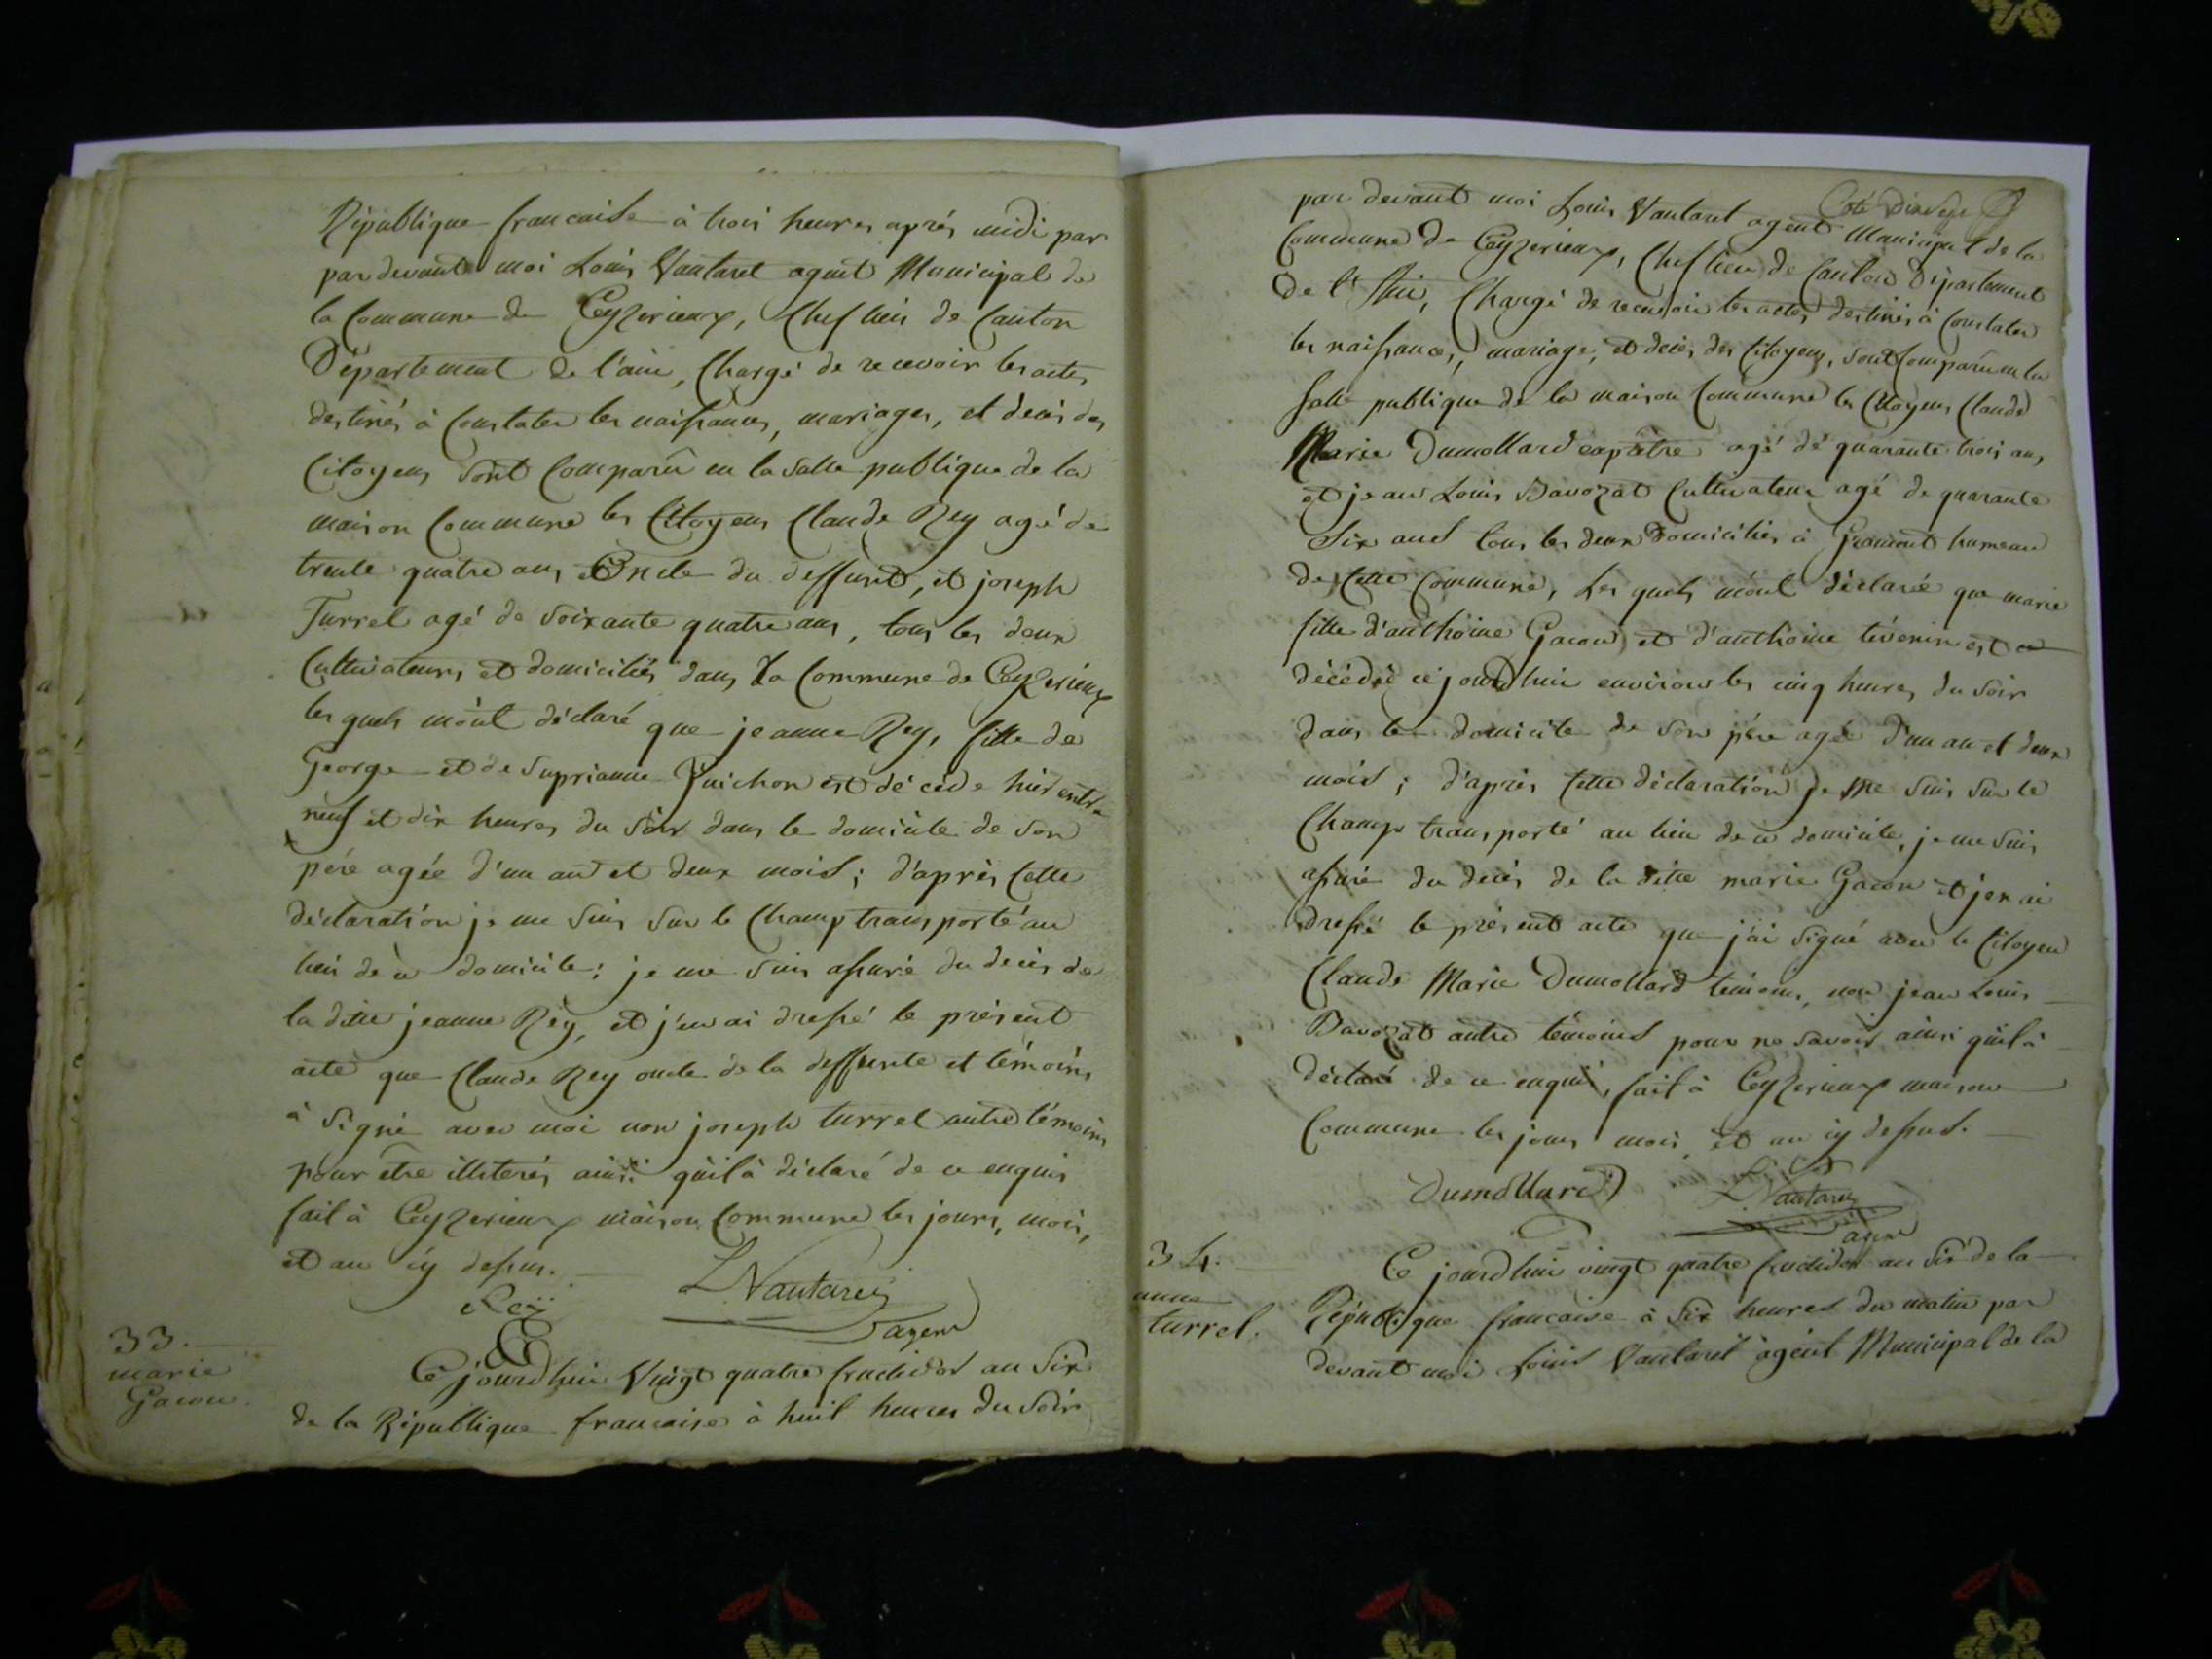 République francaise à trois heures aprés midi par
par devant moi Louis Vautaret agent Municipal de
la Commune de Ceyzerieux, Chef lieu de Canton
Département de l'ain, Chargé de recevoir les actes
destinés à Constater les naissances, mariages, et decès des
Citoyens sont Comparû en la salle publique de la
maison Commune les Citoyens Claude Rey agé de
trente quatre ans et Oncle du deffunt, et joseph
Turrel agé de soixante quatre ans, tous les deux
Cultivateurs et domiciliés dans La Commune de Ceyzerieux
les quels m'ont déclaré que jeanne Rey, fille de
George et de Suprianne Juichon est décéde hier entre
neuf et dix heures du soir dans le domicile de son
père agée d'un an et deux mois; d'aprés Cette
déclaration je me suis sur le Champ transporté au
lieu de ce domicile; je me suis assuré du decès de
la ditte jeanne Rey, et j'en ai dressé le présent
acte que Claude Rey oncle de la deffunte et témoins
à Signé avec moi non joseph turrel autre témoins
pour être illiterés ainsi qu'il à déclaré de ce enquis
fait à Ceyzerieux maison Commune les jours, mois,
et an cy dessus.
Reÿ LVautaret
agent
33.
marie
Gacon.
Ce jourd'hui Vingt quatre fructidor an Six
de la République francaise à huit heures du Soir
Coté dix Sept
par devant moi Louis Vautaret agent Municipal de la
Commune de Ceyzerieux, Chef lieu de Canton Département
De l'Ain, Chargé de recevoir les actes destinés à Constater
les naissances, mariage, et decès des Citoyens, sont Comparû en la
salle publique de la maison Commune les Citoyens Claude
Marie Dumollard agé de quarante trois ans,
et jean Louis Davozat Cultivateur agé de quarante
Six ans tous les deux Domiciliés à Gramont hameau
de Cette Commune, Les quels m'ont déclaré que marie
fille d'anthoine Gacon et d'anthoine tévenin est
décédé ce jourd'hui environ les cinq heures du soir
dans le domicile de son père agée d'un an et deux
mois; d'aprés Cette déclaration je me suis sur le
Champ transporté au lieu de ce domicile, je me suis
assuré du decès de la ditte marie Gacon et j'en ai
dressé le présent acte que j'ai signé avec le Citoyen
Claude Marie Dumollard temoins, non jean Louis
Davozat autre témoins pour ne savoir ainsi quil à
déclaré de ce enquis, fait à Ceyzerieux maison
Commune les jours mois, et an cy dessus.
Dumollard LVautaret
agent
34.
anne
turrel.
Ce jourdhui vingt quatre fructidor an Six de la
République francaise à Six heures du matin par
devant moi Louis Vautaret agent Municipal de la